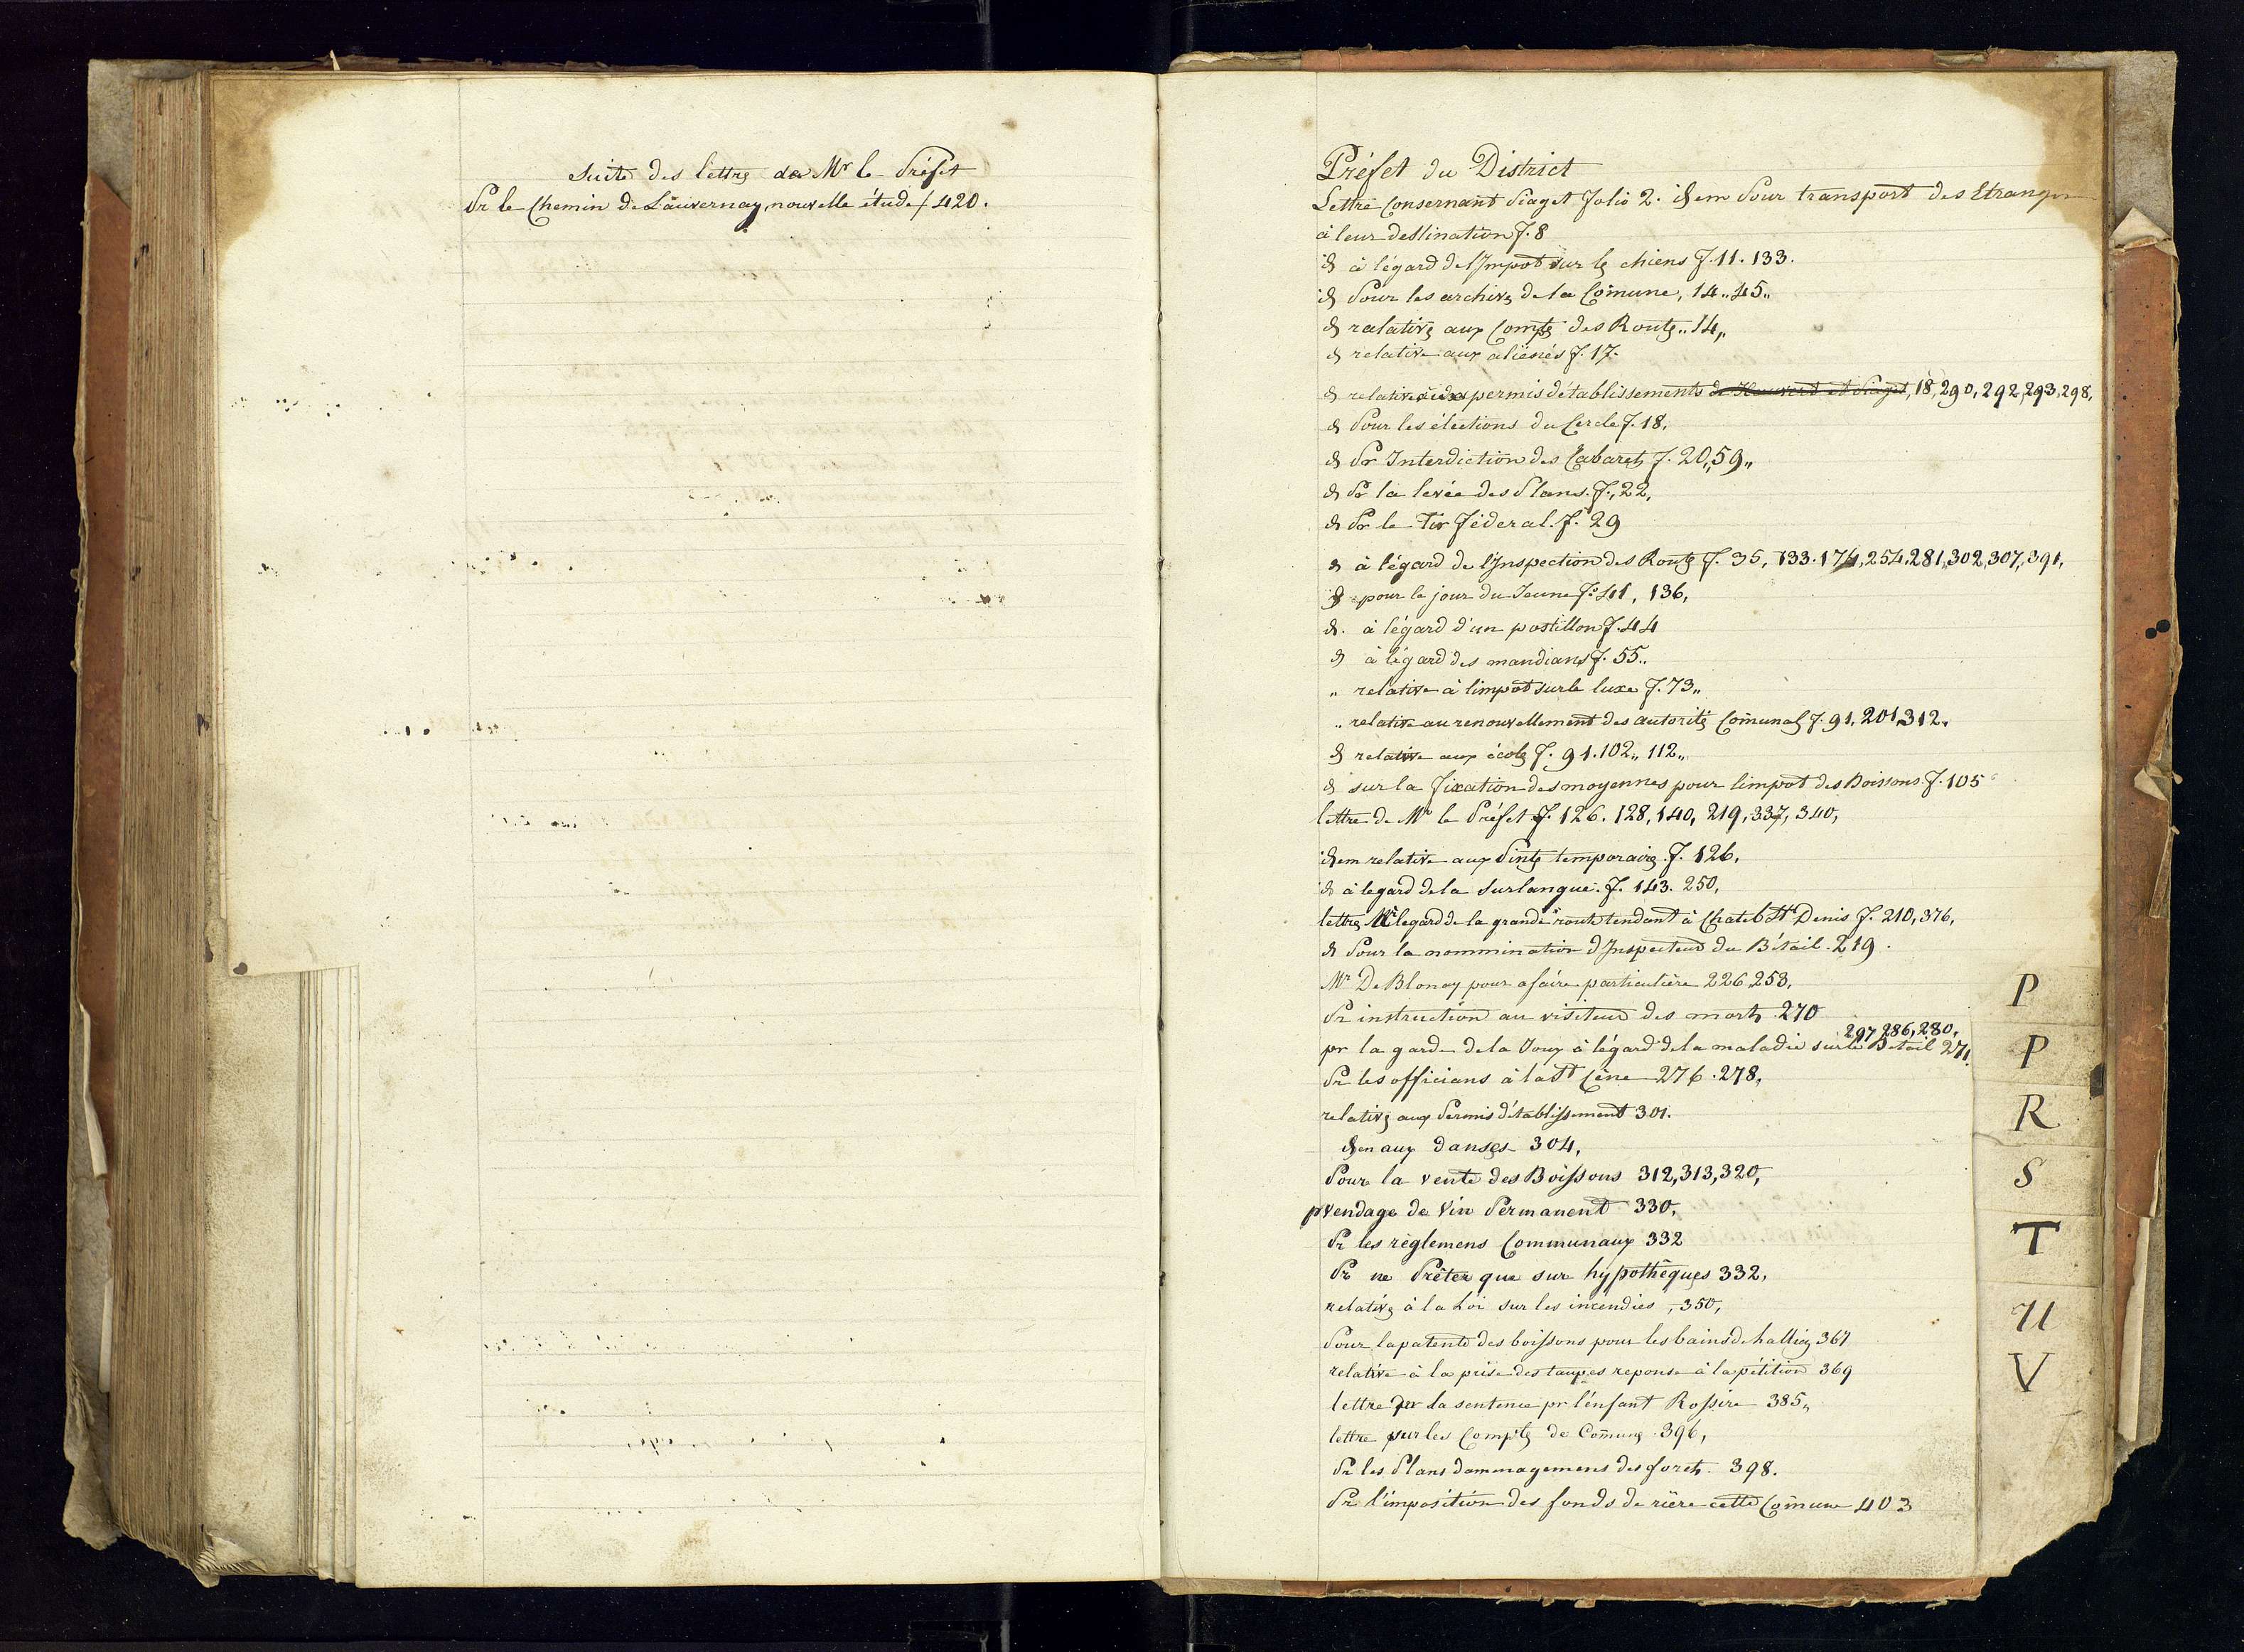 Suite des lettres de Mr le Préfet
Pr le Chemin de Lauvernay, nouvelle étude f 420.
Préfet du District
Lettre Consernant Piaget Folio 2. idem Pour transport des Etrangers
à leur destination F. 8
id à légard de l'Impot sur les chiens F. 11. 133.
id Pour les archives de la Comune, 14.. 45..
id ralatives aux Comptes des Routes.. 14,,
id relative aux aliénés F. 17.
id relatives permis d'établissements 18, 290, 292, 293, 298,
id Pour les élections du Cercle F. 18,
id Pr Interdiction des Cabarets F. 20,, 59,,
id Pr la levée des Plans. F., 22,
id Pr le Tir Féderal. F. 29
id à légard de l'Inspection des Routes F. 35, 133. 174, 254, 281, 302, 307, 391,
id pour le jour du Jeune Fo 41, 136,
id. à légard d'un postillon F. 44
id à légard des mandians F. 55..
,, relative à limpot sur le luxe F. 73,,
.. relative au renouvellement des autorités Comunales F. 91. 201, 312.
id relative aux écoles F. 91. 102,, 112,,
id sur la fixation des moyennes pour limpot des Boissons. F. 105
lettre de Mr le Préfet F. 126. 128, 140, 219, 337, 340,
idem relative aux Pintes temporaires. F. 126,
id à legard de la Surlangue. F. 143. 250,
lettres à legard de la grande route tendant à Chatel St Denis F. 210, 376,
id Pour la nommination d'Inspecteur du Bétail. 219.
Mr De Blonay pour afaire particulière 226, 258,
Pr instruction au visiteur des morts. 270
297 286, 280,
pr la garde de la Joux à légard de la maladie sur le Bétail 271.
Pr les officians à la Ste Cène 276. 278,
relatives aux Permis d'établissement 301.
idem aux danses 304,
Pour la vente des Boissons 312, 313, 320,
p vendage de Vin Permanent 330,
Pr les règlemens Communaux 332
Pr ne Prêter que sur hypothêques 332,
relatives à la Loi sur les incendies, 350,
Pour la patente des boissons pour les bains de halliaz 367
relative à la prise des taupes reponse à la pétition 369
lettre par la sentence pr l'enfant Rossire 385,,
lettre sur les Comptes de Comunes. 396,
Pr les Plans damenagemens des forets. 398.
Pr l'imposition des fonds de rière cette Comune 403
P
P
R
S
T
U
V